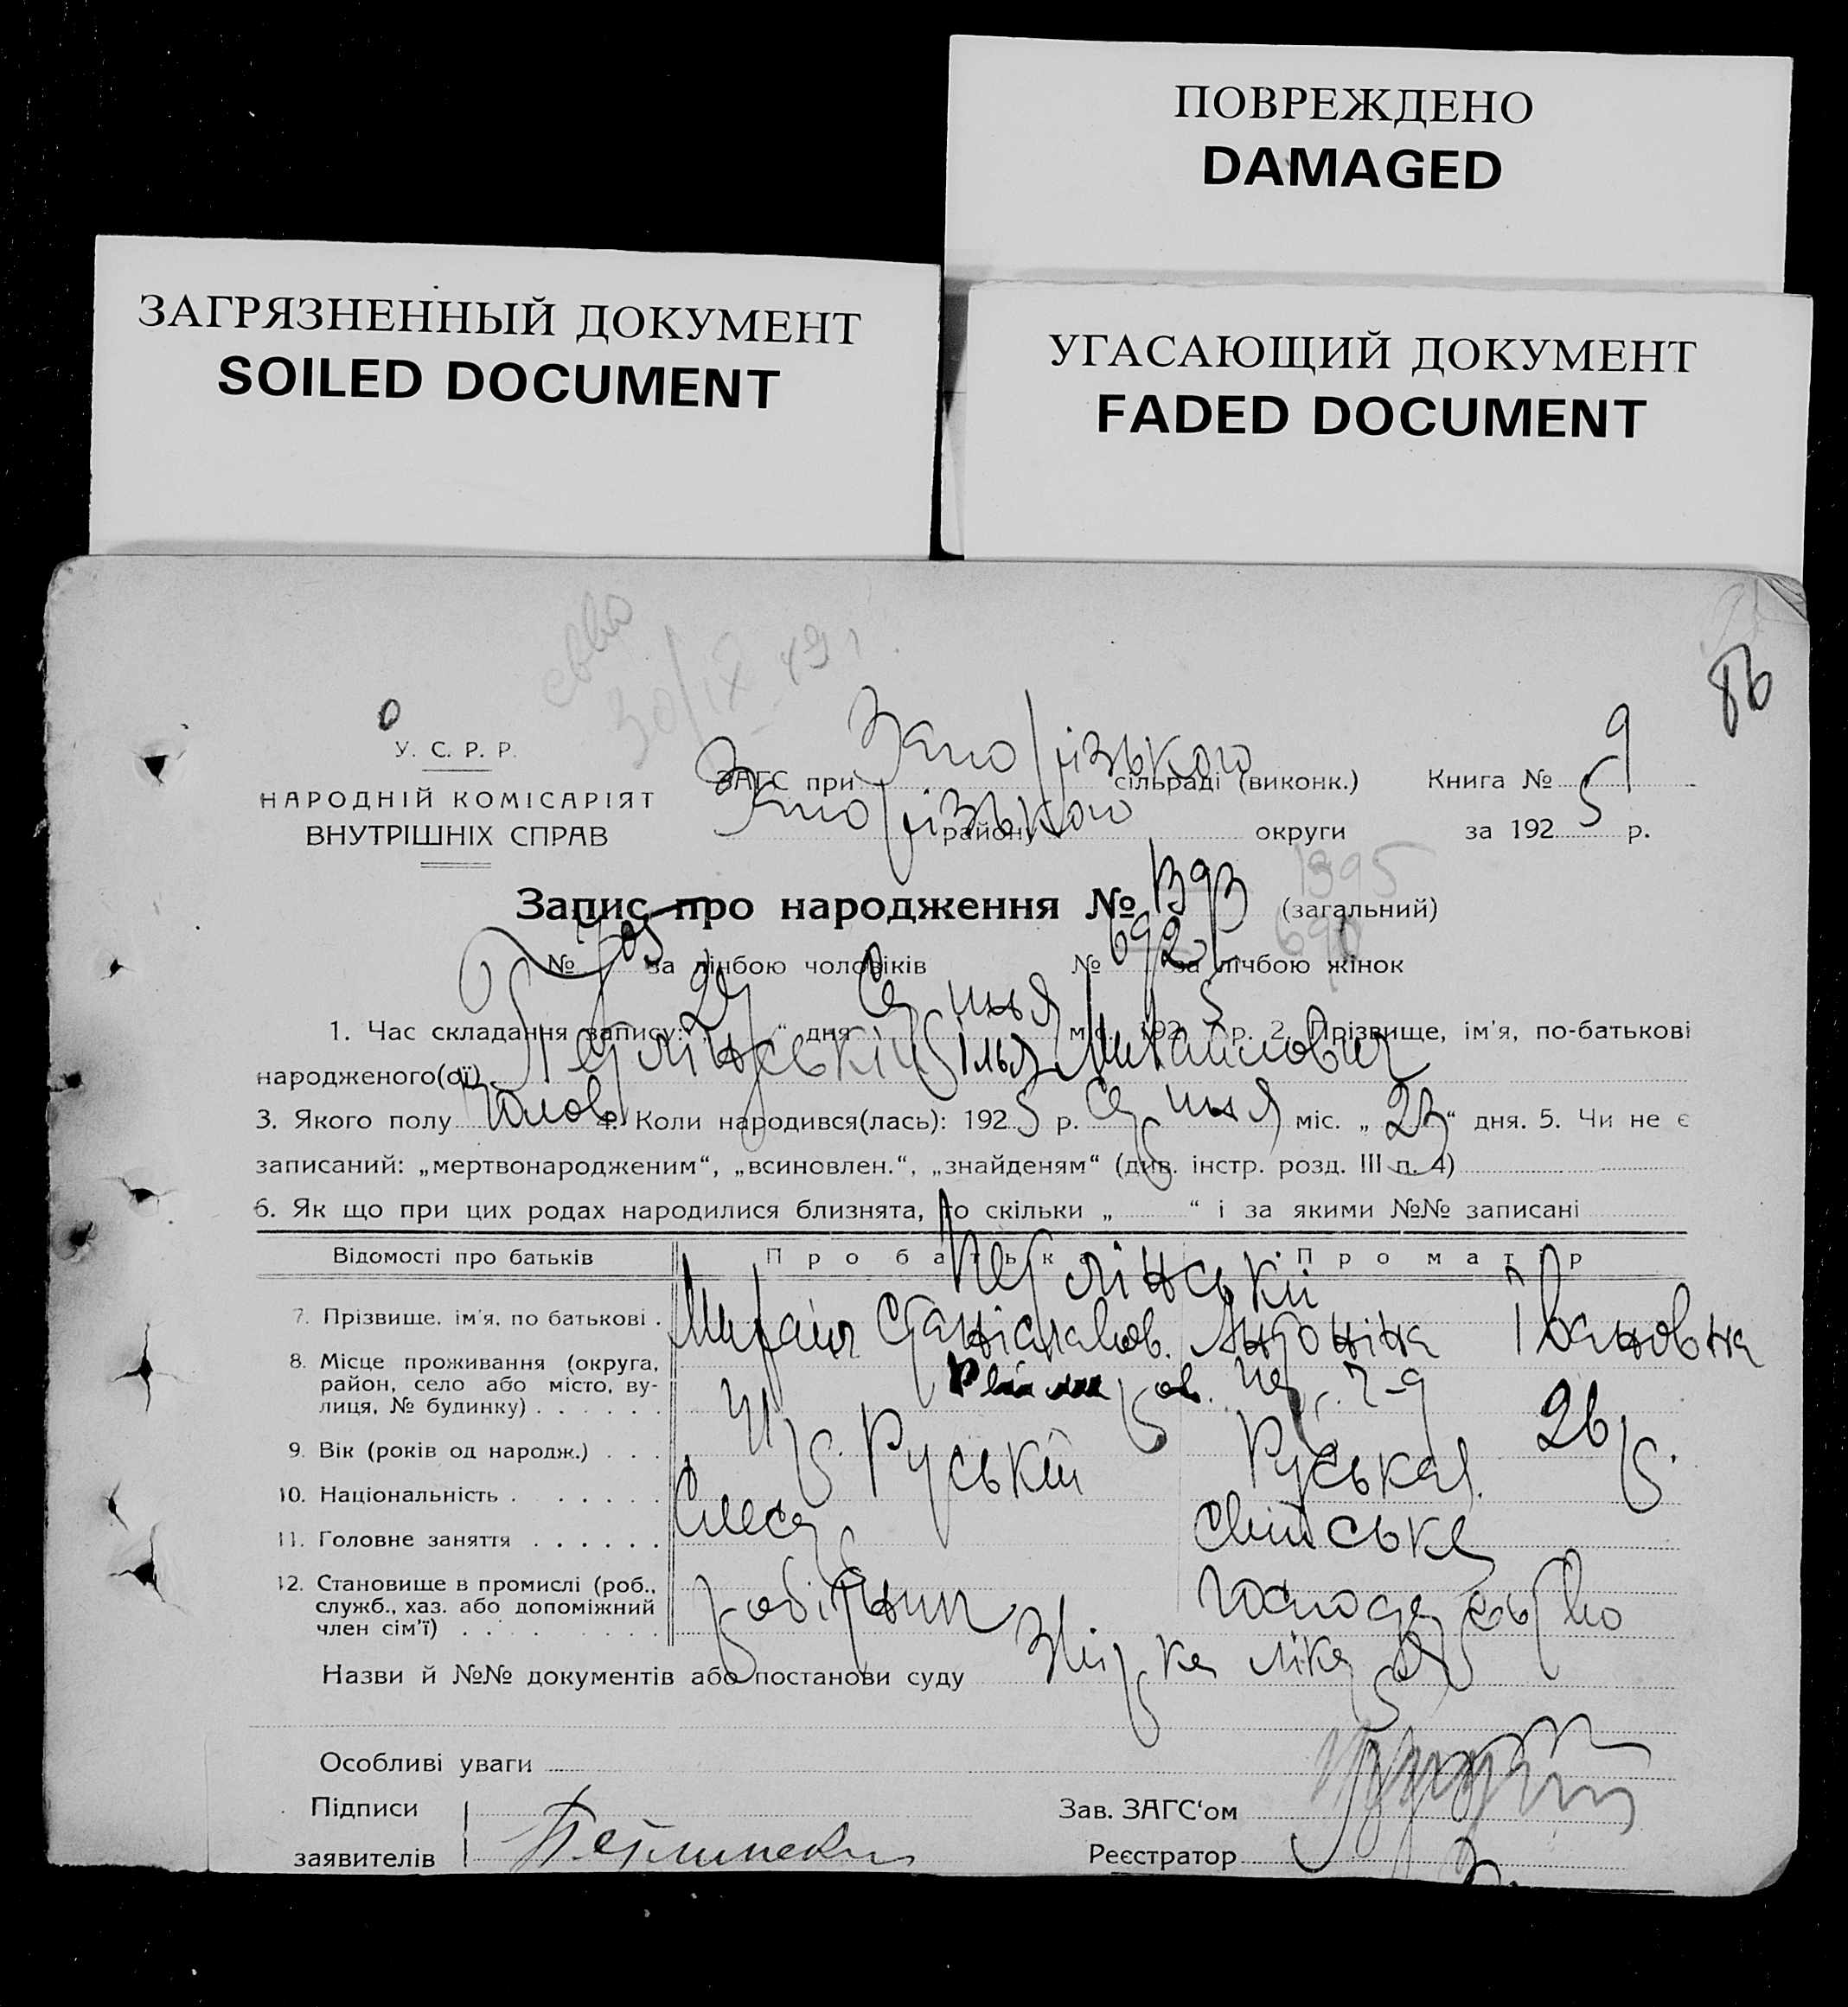 ПОВРЕЖДЕНО
DAMAGED
ЗАГРЯЗНЕННЫЙ ДОКУМЕНТ
SOILED DOCUMENT
УГАСАЮЩИЙ ДОКУМЕНТ
FADED DOCUMENT
30/IX 49 г.
86
У. С. Р. Р.
НАРОДНІЙ КОМІСАРІЯТ
ВНУТРІШНІХ СПРАВ
ЗАГС при сільраді (виконк.) Книга № 9
району округи за 1925 р.
Запис про народження № 1393 (загальний) 1395
№ 705 за лічбою чоловіків № 692 за лічбою жінок 690
1. Час складання запису: „29“ дня Серпня міс. 1925 р. 2. Прізвище, ім'я, по-батькові
народженого(ої) Петлінський Ілья Михайлович
3. Якого полу Чолов 4. Коли народився(лась): 1925 р. Серпня міс. „23“ дня. 5. Чи не є
записаний: „мертвонародженим“, „всиновлен.“, „знайденям“ (див. інстр. розд. III п. 4)
6. Як що при цих родах народилися близнята, то скільки „ “ і за якими №№ записані
Відомості про батьків Про батька Про матір
Петлінській
7. Прізвище, ім'я, по батькові . Михаіл Станіславов. Антоніна Івановна
8. Місце проживання (округа,
район, село або місто, ву-
лиця, № будинку) . . . . . .
9. Вік (років од народж.) . . . 26 р.
10. Національність . . . . . . Руській Руськая
11. Головне заняття . . . . . . Слесар Свійське
12. Становище в промислі (роб.,
служб., хаз. або допоміжний
член сім'ї) . . . . . . . . робітник господарство
Назви й №№ документів або постанови суду Звірка лікаря
Особливі уваги
Підписи Зав. ЗАГС'ом
заявителів Петлински Реєстратор